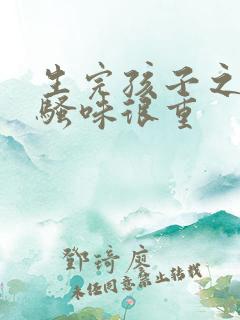 生完孩子之
骚味很重
鄧琦廖
未经同意禁止转载